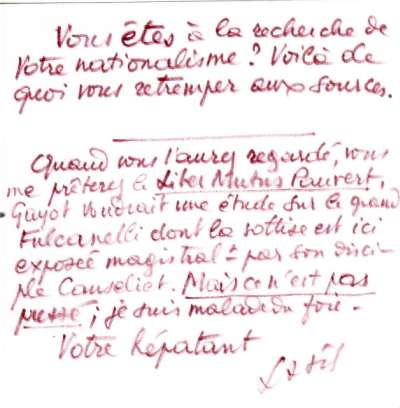 Vous êtes à la recherche de
votre nationalisme ? Voilà de
quoi vous retremper aux sources.
Quand vous l'aurez regardé, vous
me prêterez le Liber Mutus Pauvert.
Guyot voudrait une étude sur le grand
Fulcanelli dont la sottise est ici
exposée magistralt par son disci-
ple Canseliet. Mais ce n'est pas
pressé ; je suis malade du foie.
Votre Répatant